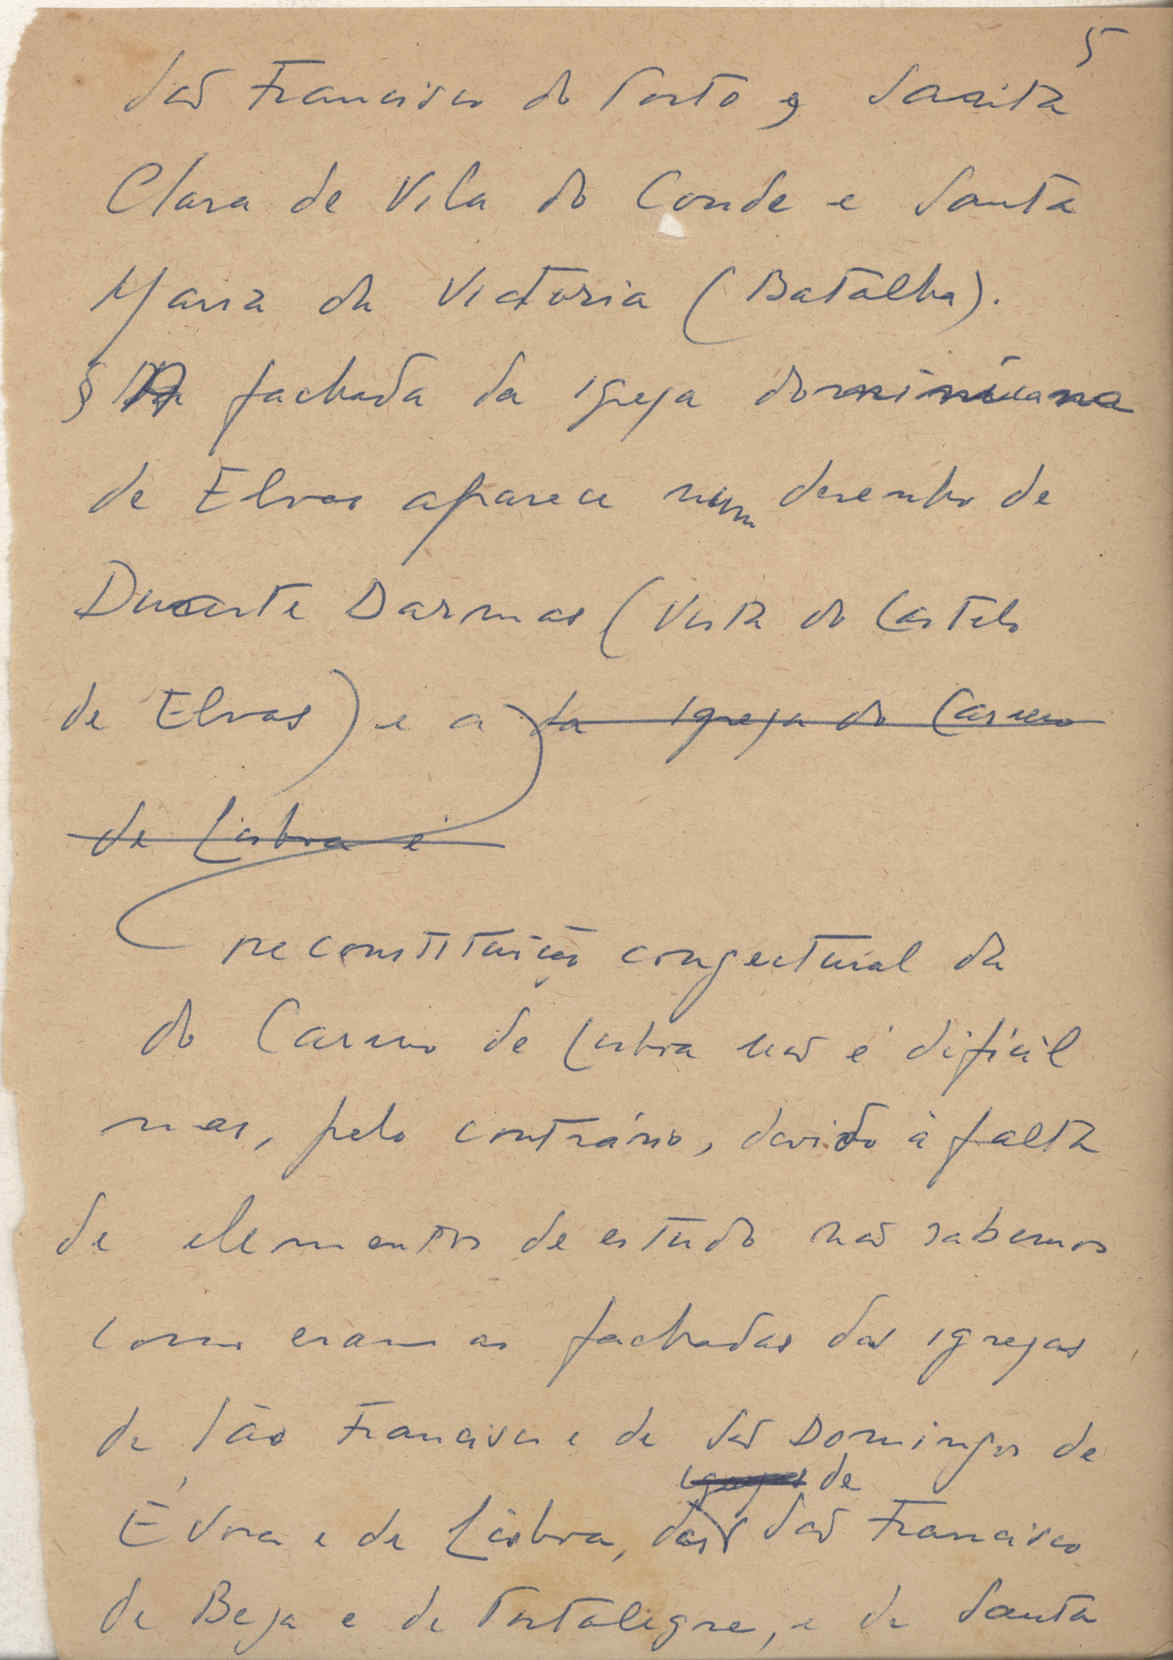 5
São Francisco do Porto e Santa
Clara de Vila do Conde e Santa
Maria da Victoria (Batalha).
§ A fachada da igreja dominicana
de Elvas aparece num desenho de
Duarte Darmas (Vista do Castelo
de Elvas) e a da Igreja do Carmo
de Lisboa é
reconstituição congectural da
do Carmo de Lisboa não é difícil
mas, pelo contrário, devido à falta
de elementos de estudo não sabemos
como eram as fachadas das igrejas
de São Francisco e de São Domingos de
igrejas de
Évora e de Lisboa, das São Francisco
de Beja e de Portalegre, e de Santa